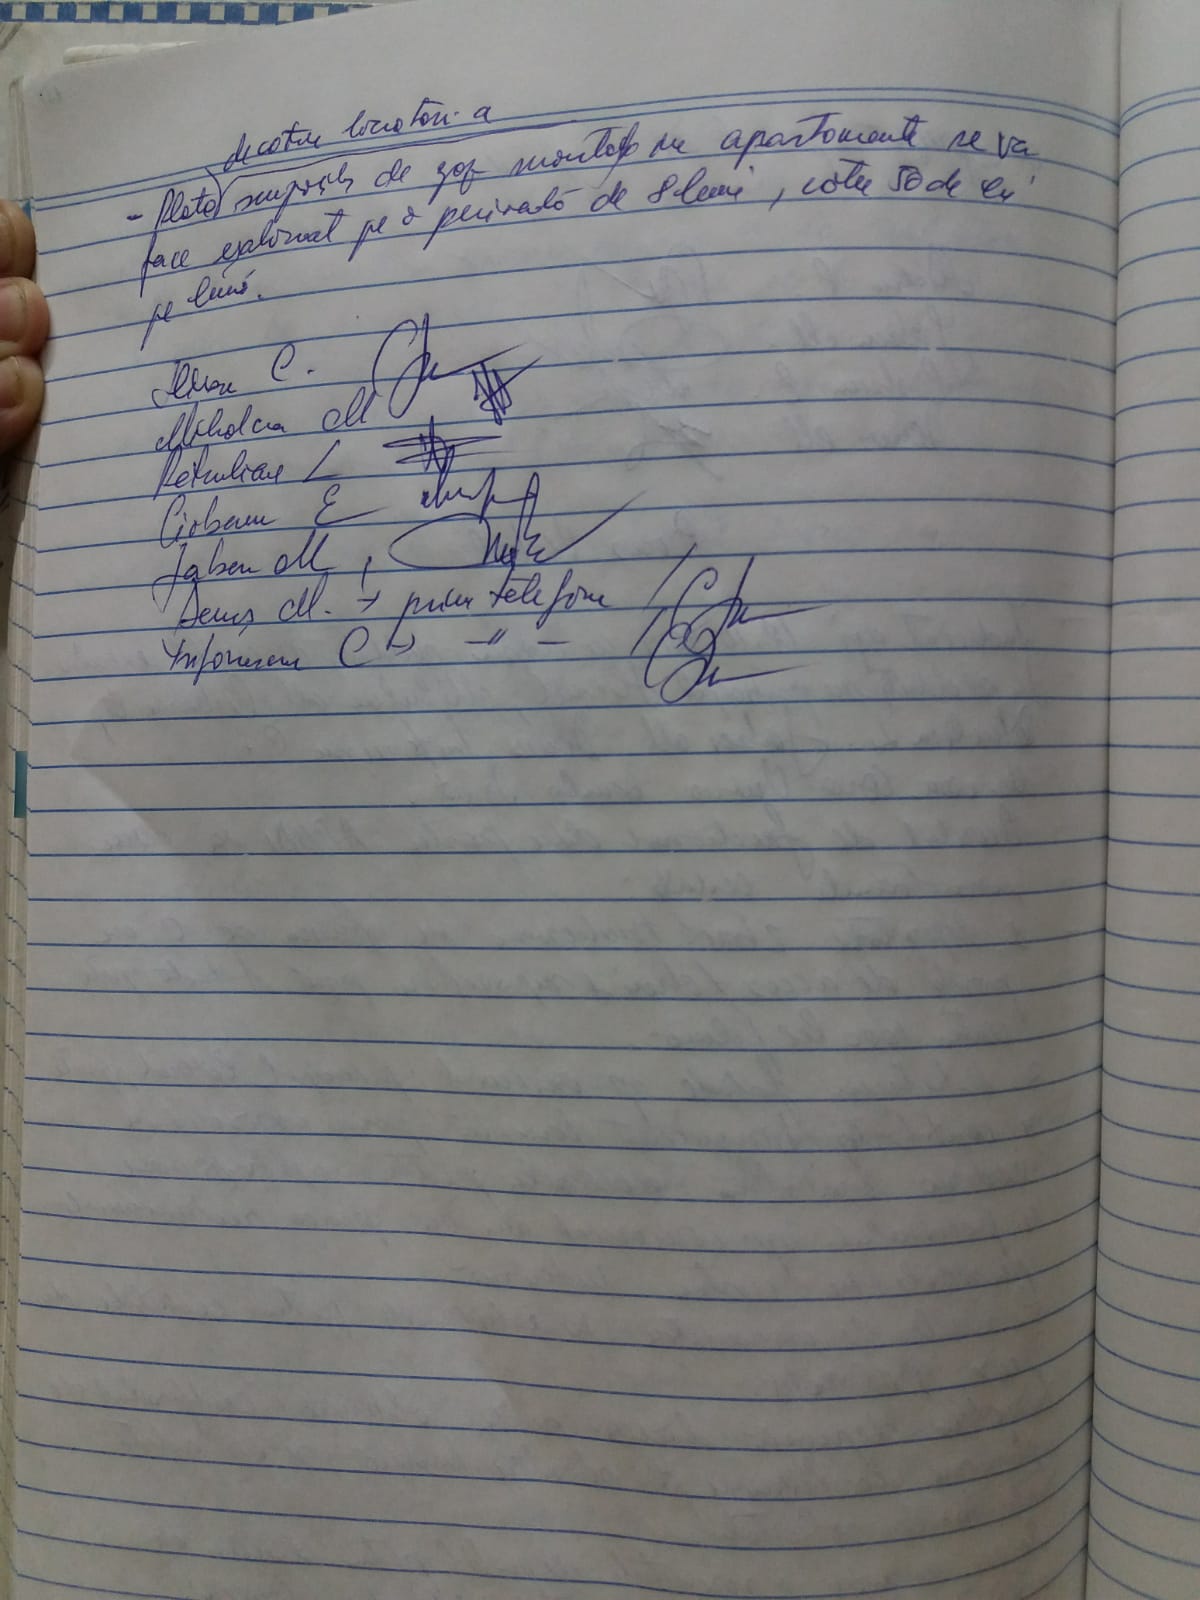 de catre locatori a
- Plata senzorilor de gaz montați in apartamente se va
face eșalonat pe o perioadă de 8 luni, câte 50 de lei
pe lună.
C.
Miholcea M
Petrulian L
Ciobanu E
M
Deniș M. → prin telefon
C → -"-